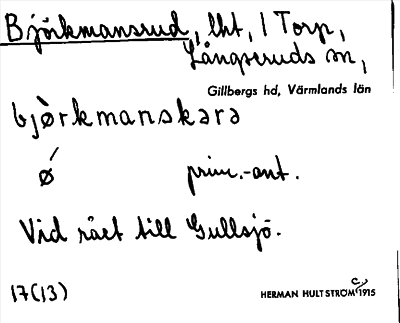 Björkmansrud, lht, 1 Torp,
Långseruds sn,
Gillbergs hd, Värmlands län
bjòrkmanskara
ǿ prim.-ant.
Vid rået till Gullsjö.
17(13) HERMAN HULTSTRÖM 1915